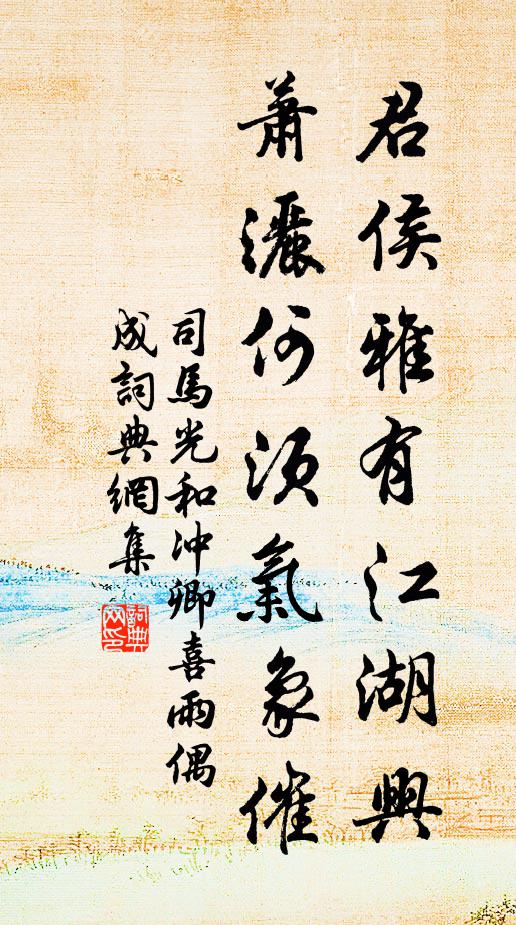 君侯雅有江湖興
蕭灑何須氣象催
司馬光和沖卿喜雨偶
成詞典網集
詞典
网印